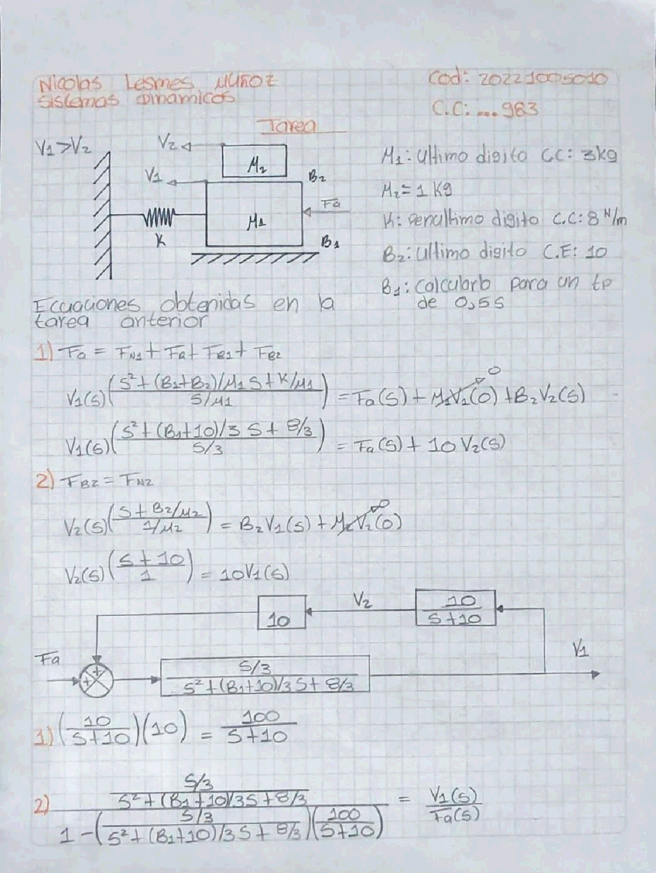 Nicolas Lesmes MUÑOZ
Cod: 20221005010
Sistemas Dinamicos
C.C: ...983
Tarea
V1>V2
V2
M2
V1
B2
Fa
K
M1
B1
M1: Ultimo digito CC: 3kg
M2= 1 Kg
K: Penultimo digito C.C: 8 N/m
B2: Ultimo digito C.E: 10
B1: Calcularlo para un tp
de 0,5s
Ecuaciones obtenidas en la
tarea anterior
1) Fa = FM1 + FK + FB1 + FB2
V1(s)((S²+(B1+B2)/M1 S+K/M1)/(S/M1)) = Fa(s) + M1V1(0) 0 + B2V2(s)
V1(s)((S²+(B1+10)/3 S + 8/3)/(S/3)) = Fa(s) + 10 V2(s)
2) FB2 = FM2
V2(s)((S+B2/M2)/(1/M2)) = B2V1(s) + M2V2(0) 0
V2(s)((S+10)/1) = 10V1(s)
10
V2
10/(S+10)
V1
Fa
+
+
(S/3)/(S²+(B1+10)/3 S + 8/3)
1) (10/(S+10))(10) = 100/(S+10)
2) ((S/3)/(S²+(B1+10)/3S+8/3))/(1-((S/3)/(S²+(B1+10)/3 S + 8/3))(100/(S+10))) = V1(s)/Fa(s)